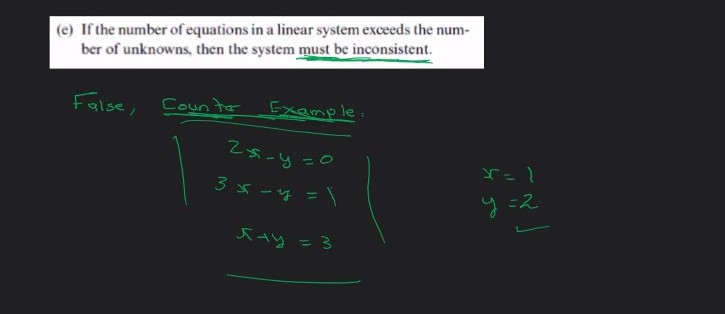 (e) If the number of equations in a linear system exceeds the num-
ber of unknowns, then the system must be inconsistent.
False, Counter Example:
2x-y=0
3x-y=1
x=1
y=2
x+y=3